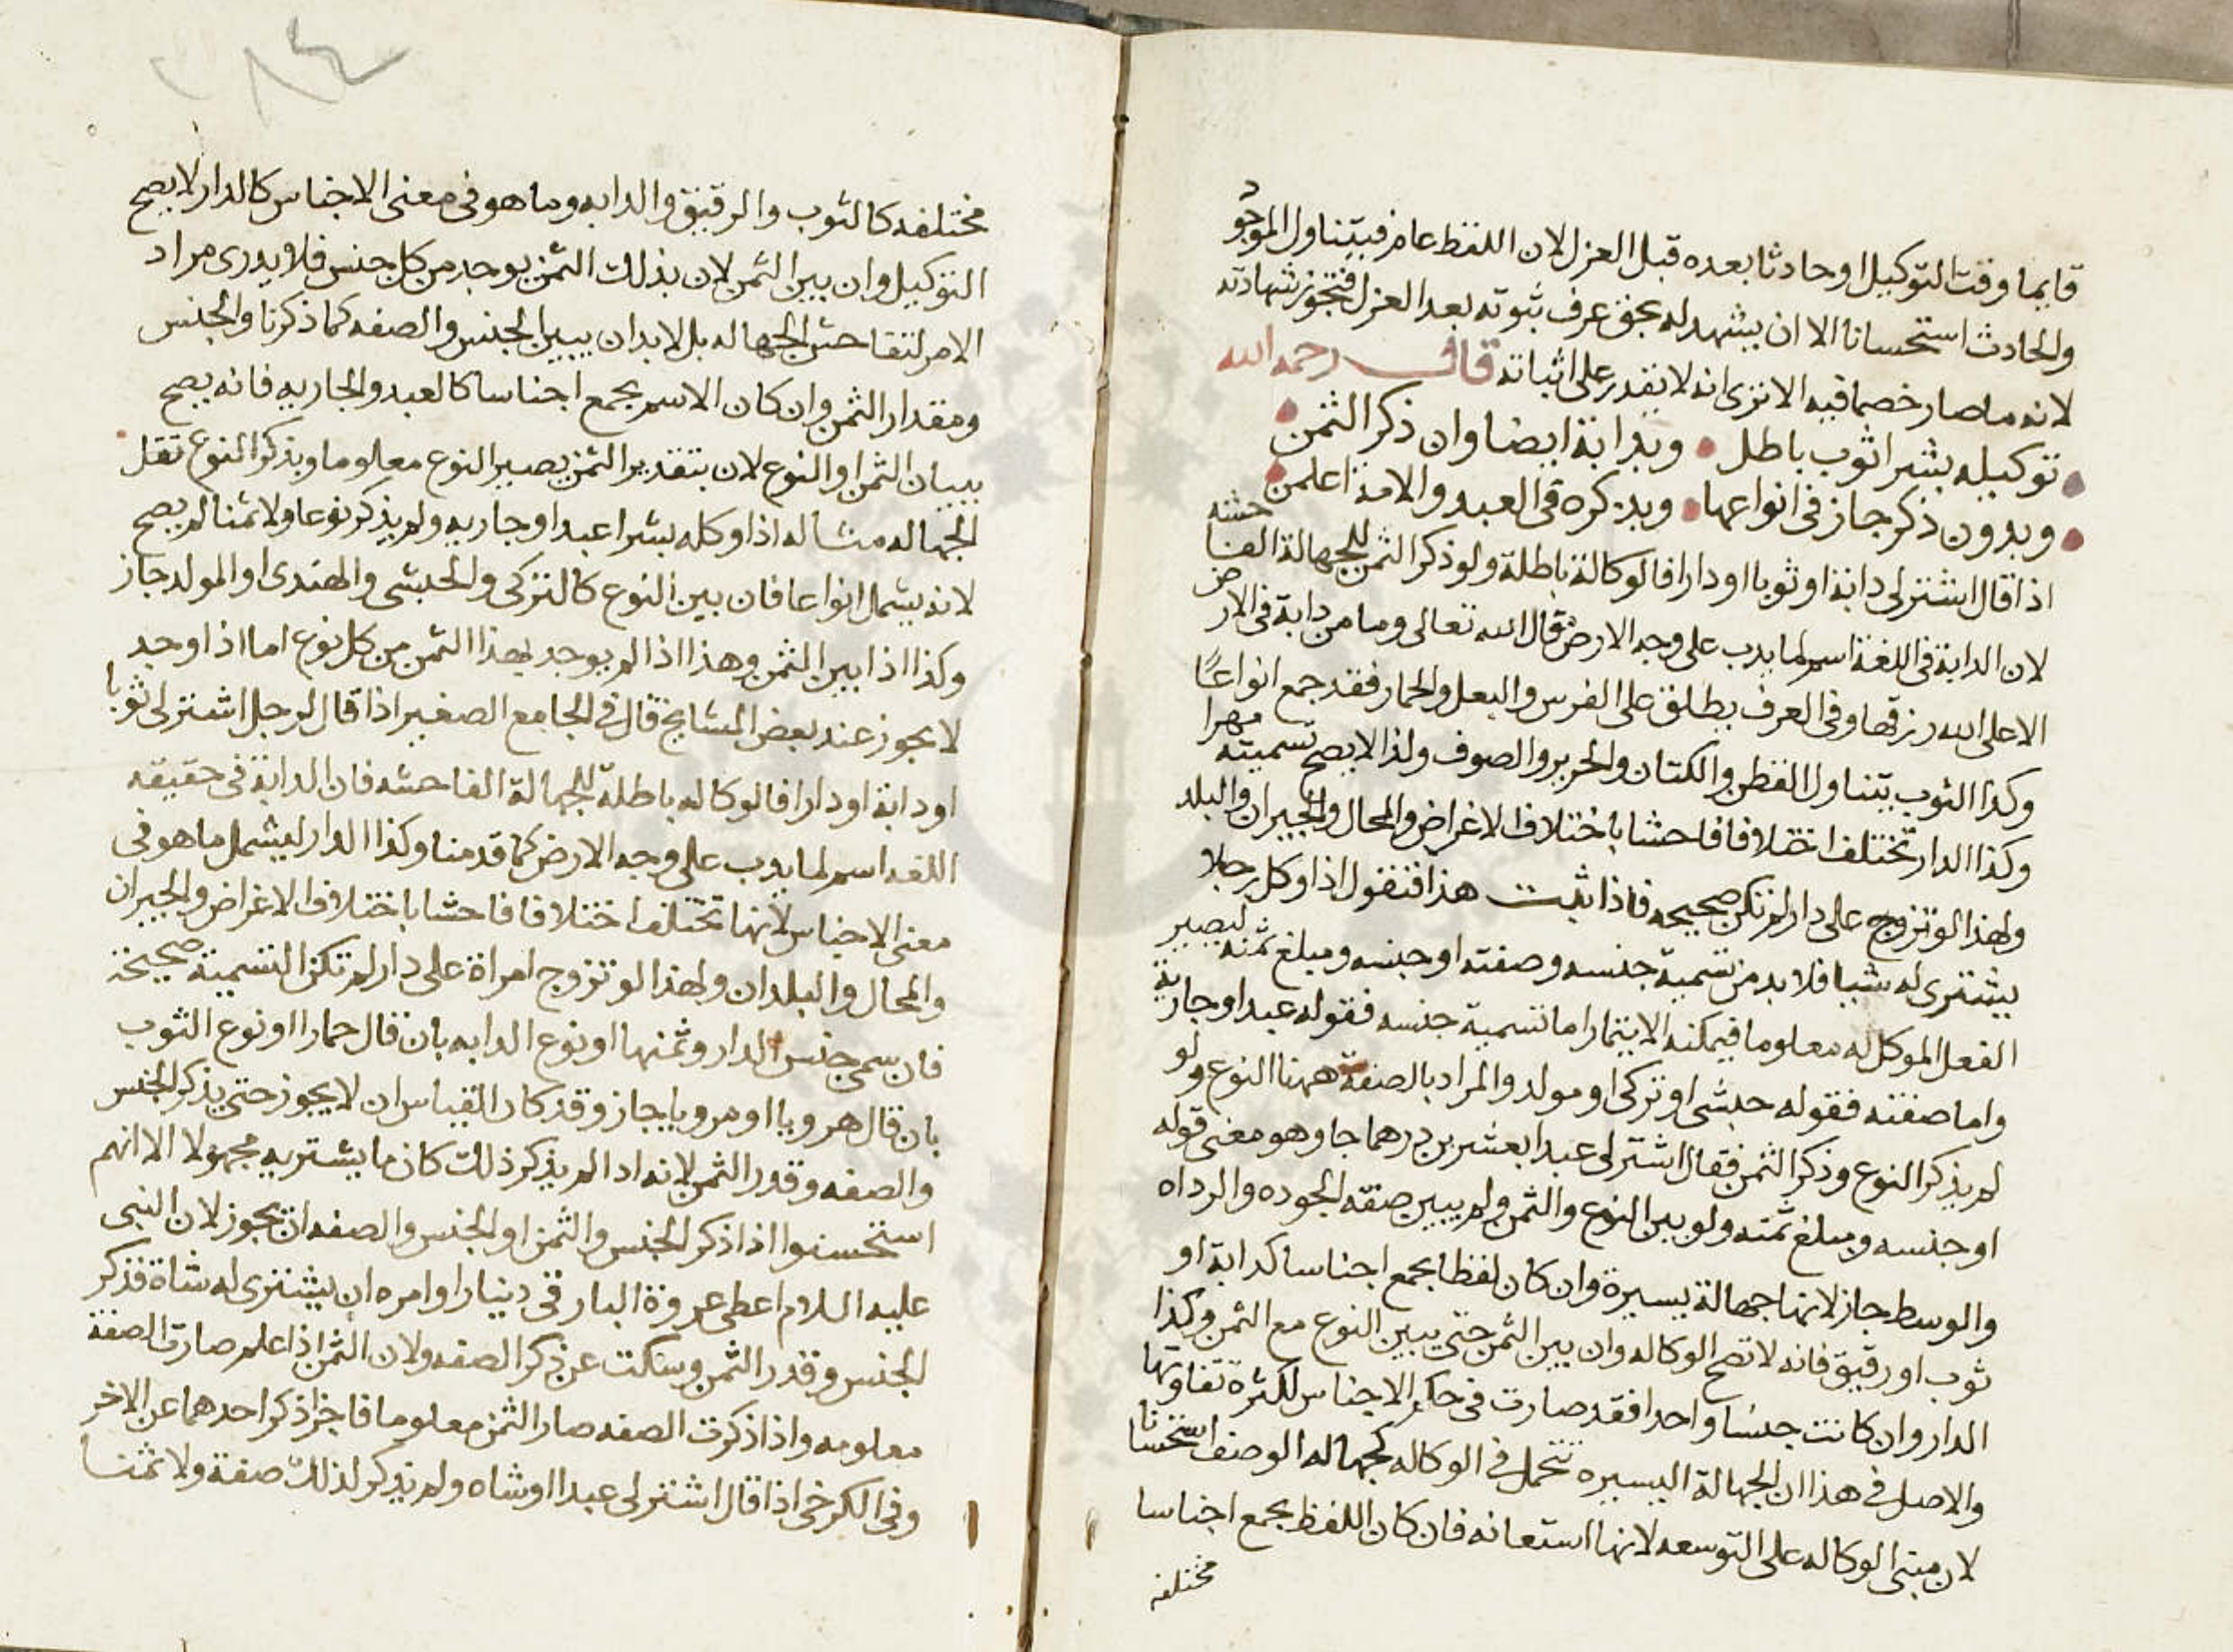 قايما وقت التوكيل او حادثا بعده قبل العزل لان اللفظ عام فيتناول الموجود
والحادث استحسانا الا ان يشهد له بحق عرف ثبوته بعد العزل فتجوز شهادته
لانه ما صار خصما فيه الا ترى انه لا يقدر على اثباته قال رحمه الله
توكيله بشرا ثوب باطل وبدابة ايضا وان ذكر الثمن
وبدون ذكر جاز في انواعها وبذكره في العبد والامة اعلمن
اذا قال اشتر لى دابة او ثوبا او دارا فالوكالة باطلة ولو ذكر الثمن للجهالة الفاحشه
لان الدابة في اللغة اسم لما يدب على وجه الارض قال الله تعالى وما من دابة في الارض
الا على الله رزقها وفي العرف يطلق على الفرس والبغل والحمار فقد جمع انواعًا
وكذا الثوب يتناول القطن والكتان والحرير والصوف ولذا لا يصح تسميته مهرا
وكذا الدار تختلف اختلافا فاحشا باختلاف الاغراض والمحال والجيران والبلد
ولهذا لو تزوج على دار لم تكن صحيحه فاذا ثبت هذا فنقول اذا وكل رجلا
يشترى له شيا فلا بد من تسمية جنسه وصفته او جنسه ومبلغ ثمنه ليصير
الفعل الموكل له معلوما فيمكنه الايتمار اما تسمية جنسه فقوله عبد او جارية
واما صفته فقوله حبشى او تركى او مولد والمراد بالصفة ههنا النوع ولو
لم يذكر النوع وذكر الثمن فقال اشتر لى عبدا بعشرين درهما جاز وهو معنى قوله
او جنسه ومبلغ ثمنه ولو بين النوع والثمن ولم يبين صفة الجوده والرداه
والوسط جاز لانها جهالة يسيرة وان كان لفظا يجمع اجناسا كدابة او
ثوب او رقيق فانه لا تصح الوكاله وان بين الثمن حتى يبين النوع مع الثمن وكذا
الدار وان كانت جنسا واحدا فقد صارت في حكم الاجناس لكثرة تفاوتها
والاصل في هذا ان الجهالة اليسيره تتحمل في الوكاله كجهاله الوصف استحسانا
لان مبنى الوكاله على التوسعه لانها استعانه فان كان اللفظ يجمع اجناسا
مختلفه
مختلفه كالثوب والرقيق والدابه وما هو في معنى الاجناس كالدار لا يصح
التوكيل وان بين الثمن لان بذلك الثمن يوجد من كل جنس فلا يدرى مراد
الامر لتفاحش الجهاله بل لا بد ان يبين الجنس والصفه كما ذكرنا والجنس
ومقدار الثمن وان كان الاسم يجمع اجناسا كالعبد والجاريه فانه يصح
ببيان الثمن او النوع لان بتقدير الثمن يصير النوع معلوما وبذكر النوع تقل
الجهاله مثاله اذا وكله بشرا عبد او جاريه ولم يذكر نوعا ولا ثمنا لم يصح
لانه يشمل انواعا فان بين النوع كالتركى والحبشى والهندى او المولد جاز
وكذا اذا بين الثمن وهذا اذا لم يوجد بهذا الثمن من كل نوع اما اذا وجد
لا يجوز عند بعض المشايخ قال في الجامع الصغير اذا قال لرجل اشتر لى ثوبا
او دابة او دارا فالوكاله باطلة للجهالة الفاحشه فان الدابة في حقيقه
اللغه اسم لما يدب على وجه الارض كما قدمنا وكذا الدار ليشمل ما هو في
معنى الاجناس لانها تختلف اختلافا فاحشا باختلاف الاغراض والجيران
والمحال والبلدان ولهذا لو تزوج امراة على دار لم تكن التسمية صحيحة
فان سمى جنس الدار وثمنها او نوع الدابه بان قال حمارا او نوع الثوب
بان قال هرويا او مرويا جاز وقد كان القياس ان لا يجوز حتى يذكر الجنس
والصفه وقدر الثمن لانه اذا لم يذكر ذلك كان ما يشتريه مجهولا الا انهم
استحسنوا اذا ذكر الجنس والثمن او الجنس والصفه ان يجوز لان النبى
عليه السلام اعطى عروة البارقى دينارا وامره ان يشترى له شاة فذكر
الجنس وقدر الثمن وسكت عن ذكر الصفه ولان الثمن اذا علم صارت الصفة
معلومه واذا ذكرت الصفه صار الثمن معلوما فاجزا ذكر احدهما عن الاخر
وفي الكرخى اذا قال اشتر لى عبدا او شاه ولم يذكر لذلك صفة ولا ثمنا